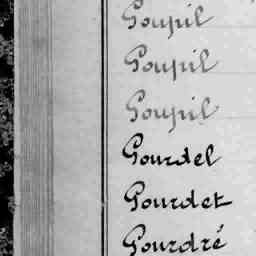 Goupil
Goupil
Goupil
Gourdel
Gourdet
Gourdré